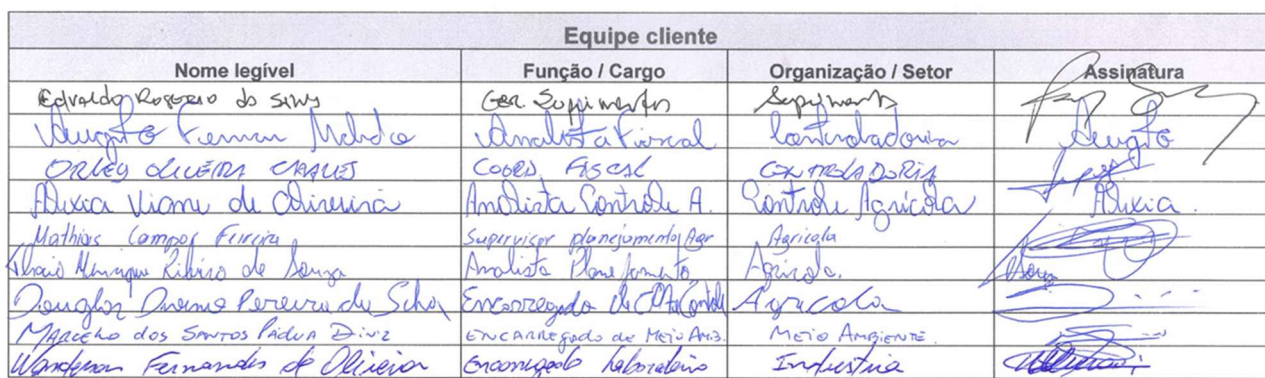 Equipe cliente
Nome legível Função / Cargo Organização / Setor Assinatura
Edvaldo Rogerio da Silva Ger. Suprimentos Suprimentos
Augusto Machado Analista Fiscal Controladoria Augusto
ORLEY OLIVEIRA COORD. FISCAL CONTROLADORIA
Aléxia Viana de Oliveira Analista Controle A. Controle Agrícola Aléxia.
Mathias Campos Ferreira Supervisor planejamento Agr Agricola
Henrique Ribeiro de Souza Analista Planejamento Agricola.
Douglas Pereira da Silva Encarregado de Agricola
MARCELO dos SANTOS PÁDUA DINIZ ENCARREGADO de MEIO AMB. MEIO AMBIENTE.
Wanderson Fernandes de Oliveira Encarregado laboratório Industria